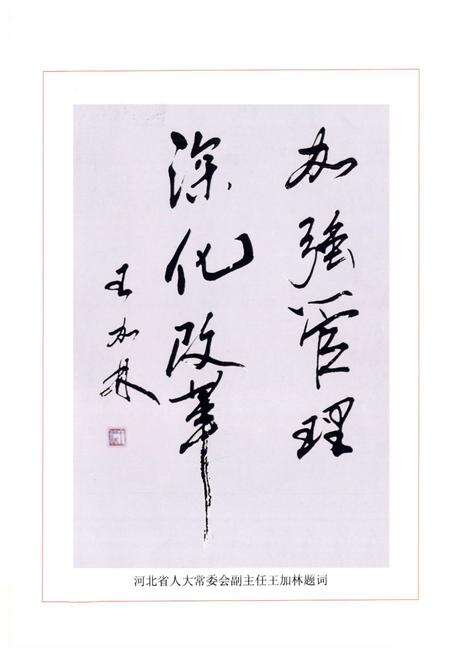 加强管理
深化改革
王加林
河北省人大常委会副主任王加林题词